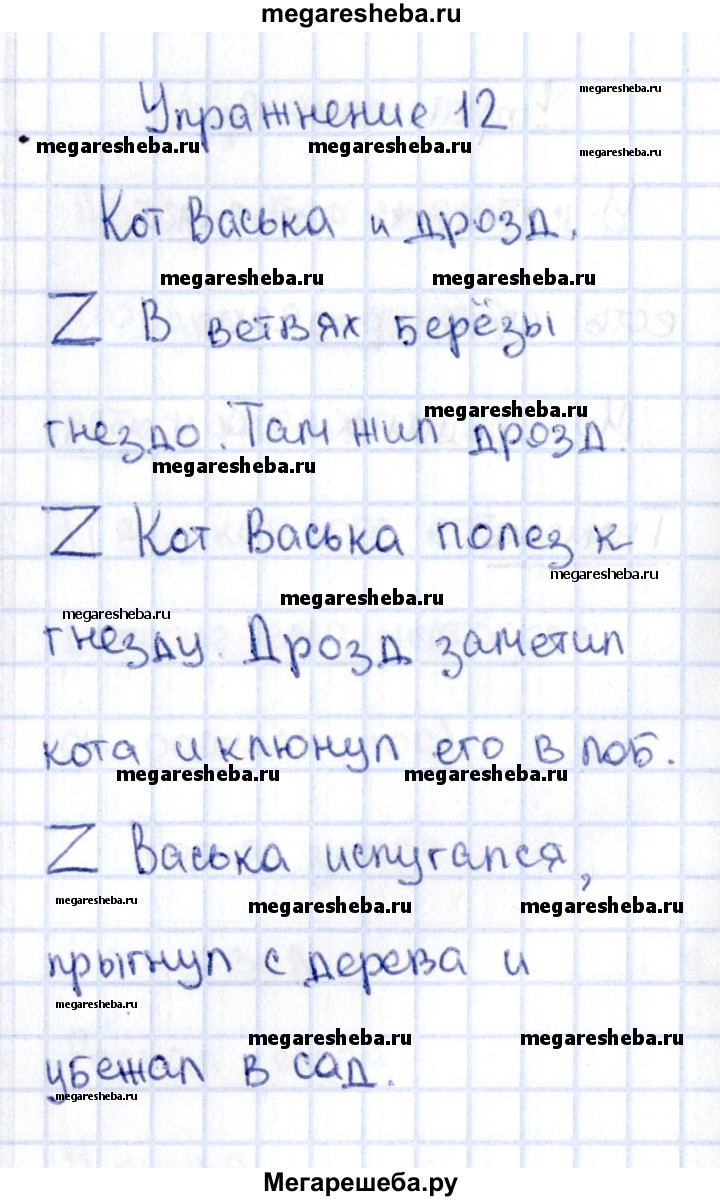 megaresheba.ru
Упражнение 12
megaresheba.ru
megaresheba.ru megaresheba.ru megaresheba.ru
Кот Васька и дрозд.
megaresheba.ru megaresheba.ru
Z В ветвях берёзы
megaresheba.ru
гнездо. Там жил дрозд.
megaresheba.ru
Z Кот Васька полез к
megaresheba.ru
megaresheba.ru
megaresheba.ru
гнезду. Дрозд заметил
кота и клюнул его в лоб.
megaresheba.ru megaresheba.ru
Z Васька испугался,
megaresheba.ru megaresheba.ru megaresheba.ru
прыгнул с дерева и
megaresheba.ru
megaresheba.ru megaresheba.ru
убежал в сад.
megaresheba.ru
Мегарешеба.ру